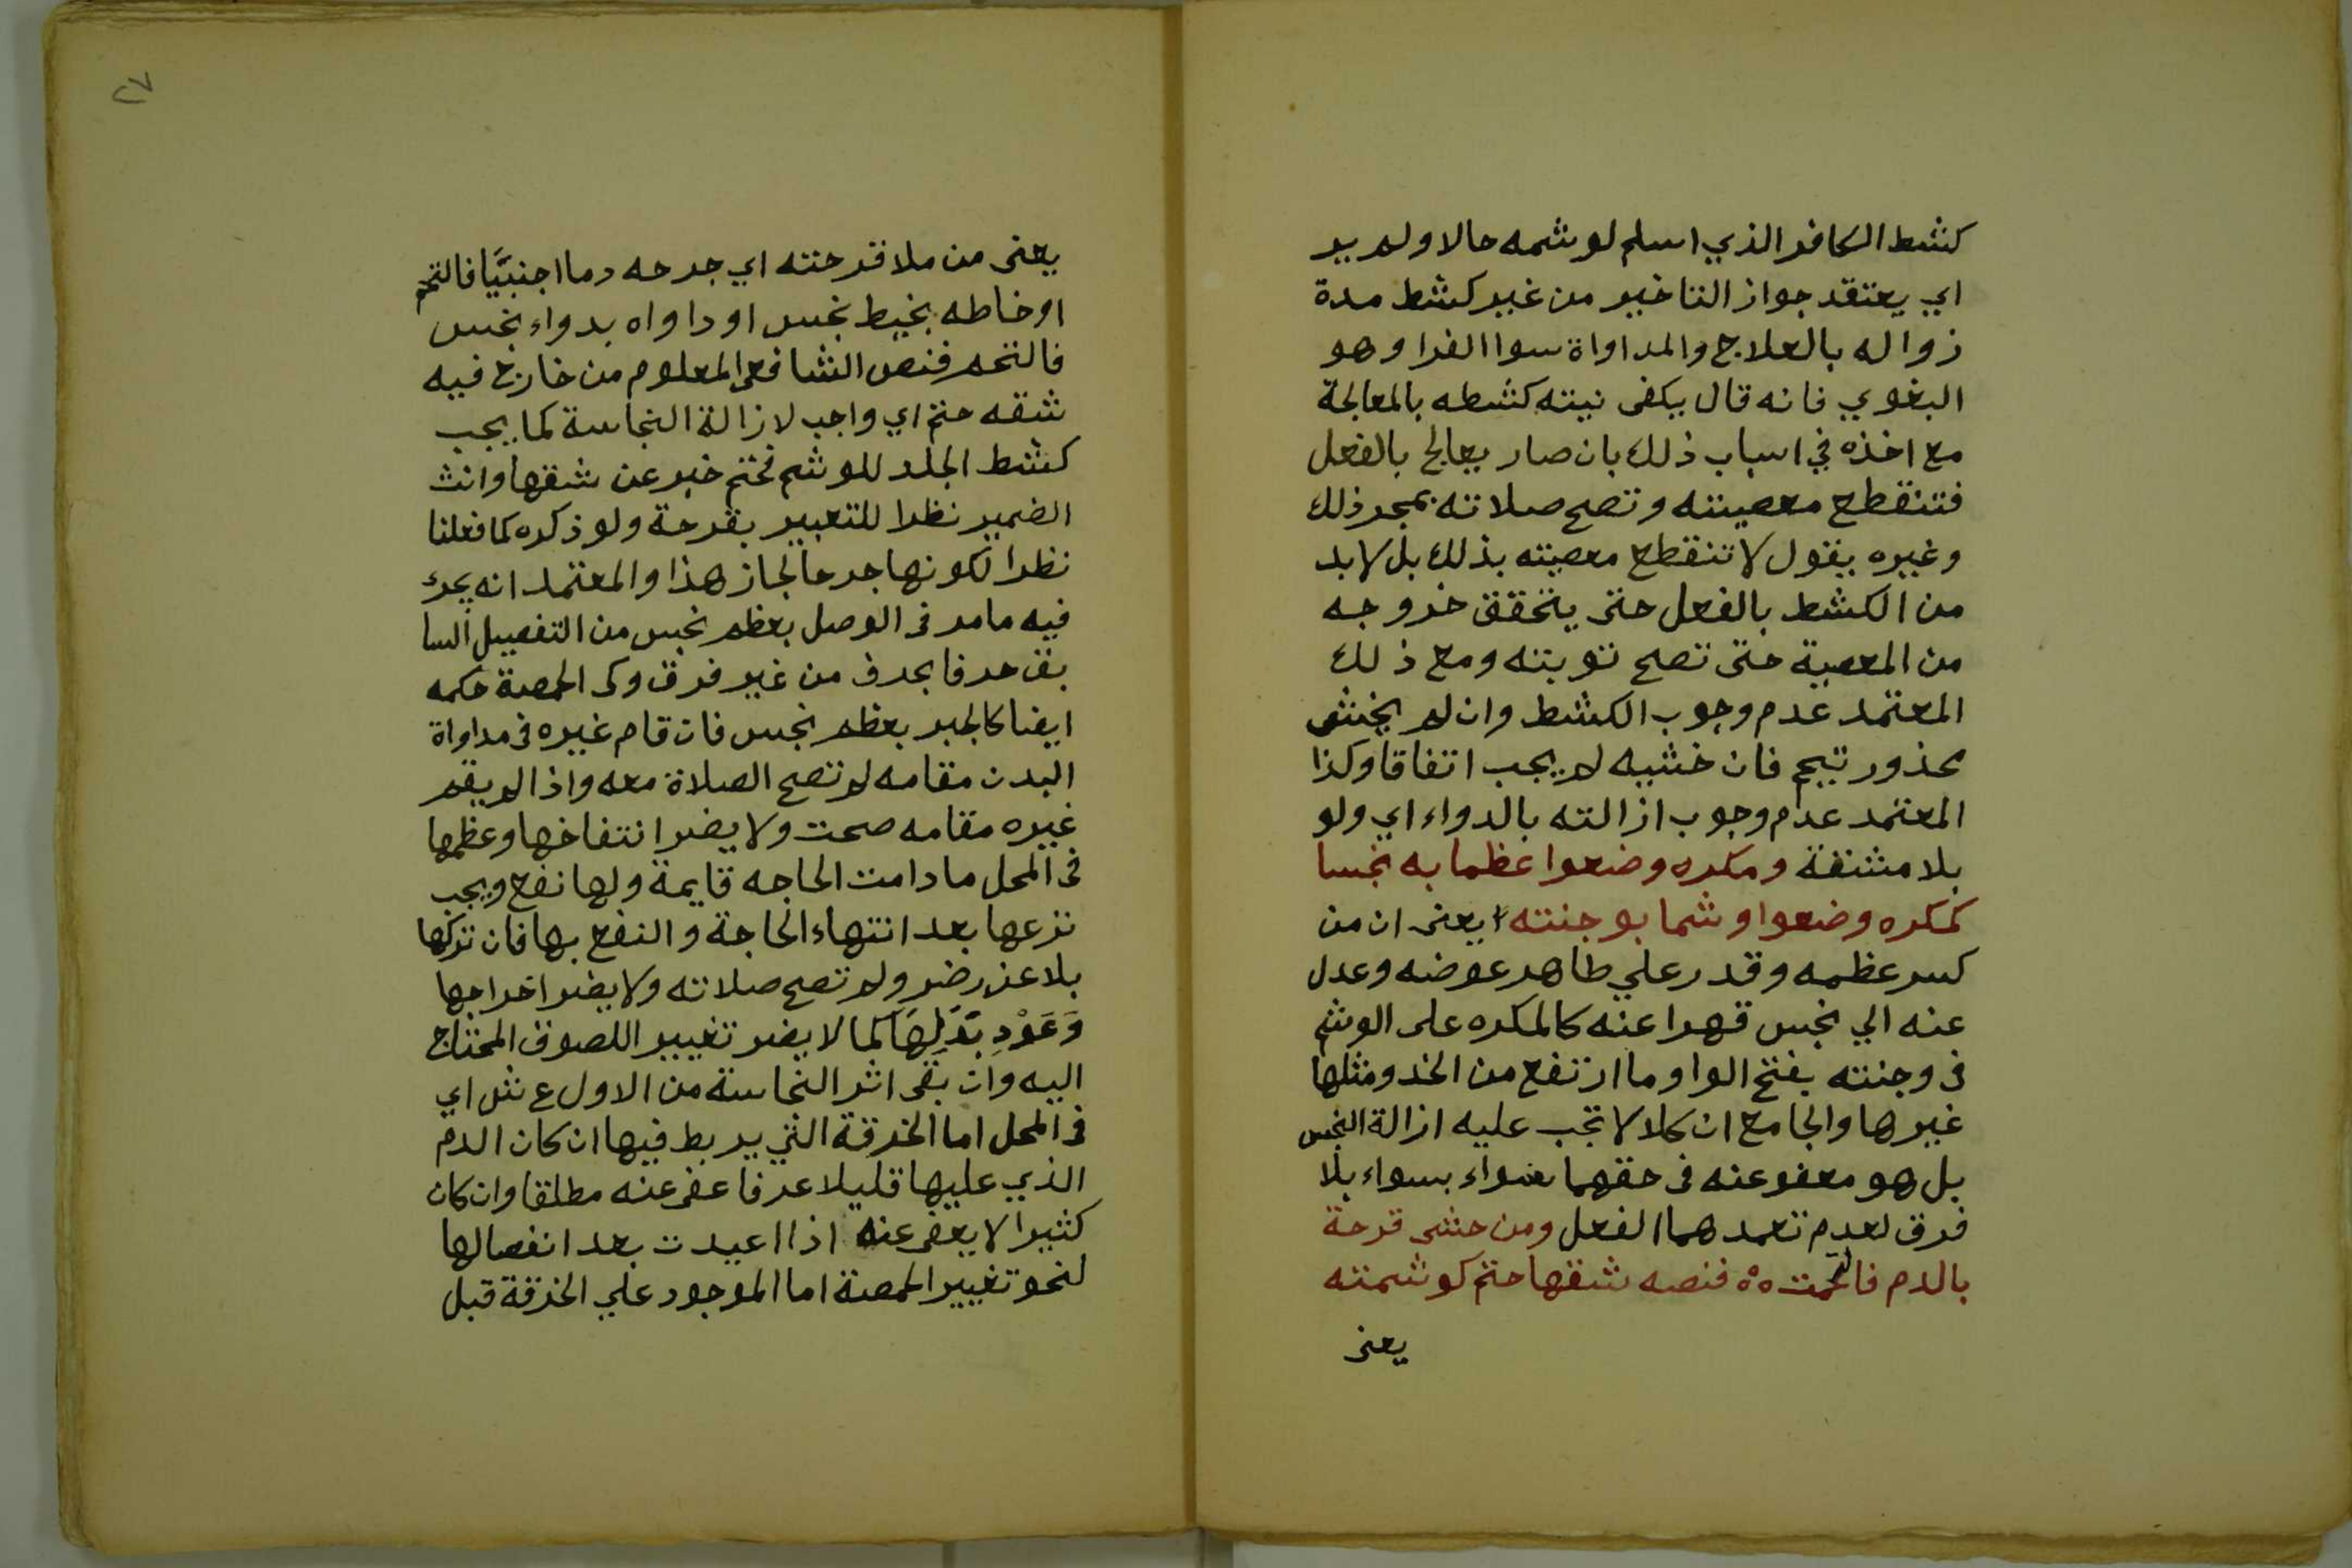 كشط الكافر الذي اسلم لوشمه حالا ولم ير
اي يعتقد جواز التاخير من غير كشط مدة
زواله بالعلاج والمداواة سوا الفرا وهو
البغوي فانه قال يكفى نيته كشطه بالمعالجة
مع اخذه في اسباب ذلك بان صار يعالج بالفعل
فتنقطع معصيته وتصح صلاته بمجرد ذلك
وغيره يقول لا تنقطع معصيته بذلك بل لا بد
من الكشط بالفعل حتى يتحقق خروجه
من المعصية حتى تصح توبته ومع ذلك
المعتمد عدم وجوب الكشط وان لم يخشى
محذور تيمم فان خشيه لم يجب اتفاقا وكذا
المعتمد عدم وجوب ازالته بالدواء اي ولو
بلا مشقة ومكره وضعوا عظما به نجسا
كمكره وضعوا وشما بوجنته يعنى ان من
كسر عظمه وقدر علي طاهر عوضه وعدل
عنه الي نجس قهرا عنه كالمكره على الوشم
فى وجنته بفتح الواو ما ارتفع من الخد ومثلها
غيرها والجامع ان كلا لا تجب عليه ازالة النجس
بل هو معفو عنه فى حقهما سواء بسواء بلا
فرق لعدم تعمدهما الفعل ومن حشى قرحة
بالدم فالتحمت ٥٥ فنصه شقها حتم كوشمته
يعنى
٢٧
يعنى من ملا قرحته اي جرحه دما اجنبيَّا فالتحم
او خاطه بخيط نجس او داواه بدواء نجس
فالتحم فنص الشافعى المعلوم من خارج فيه
شقه حتم اي واجب لازالة النجاسة كما يجب
كشط الجلد للوشم فحتم خبر عن شقها وانث
الضمير نظرا للتعبير بقرحة ولو ذكره كما فعلنا
نظرا لكونها جرحا لجاز هذا والمعتمد انه يجرى
فيه ما مر فى الوصل بعظم نجس من التفصيل السا
بق حرفا بحرف من غير فرق وكى الحمصة حكمه
ايضا كالجبر بعظم نجس فان قام غيره فى مداواة
البدن مقامه لم تصح الصلاة معه واذا لم يقم
غيره مقامه صحت ولا يضر انتفاخها وعظمها
فى المحل ما دامت الحاجه قايمة ولها نفع ويجب
نزعها بعد انتهاء الحاجة والنفع بها فان تركها
بلا عذر ضر ولم تصح صلاته ولا يضر اخراجها
وَعَوْدِ بَدَلِهَا كما لا يضر تغيير اللصوق المحتاج
اليه وان بقى اثر النجاسة من الاول ع ش اي
فى المحل اما الخرقة التي يربط فيها ان كان الدم
الذي عليها قليلا عرفا عفى عنه مطلقا وان كان
كثيرا لا يعفى عنه اذا اعيدت بعد انفصالها
لنحو تغيير الحمصة اما الموجود علي الخرقة قبل